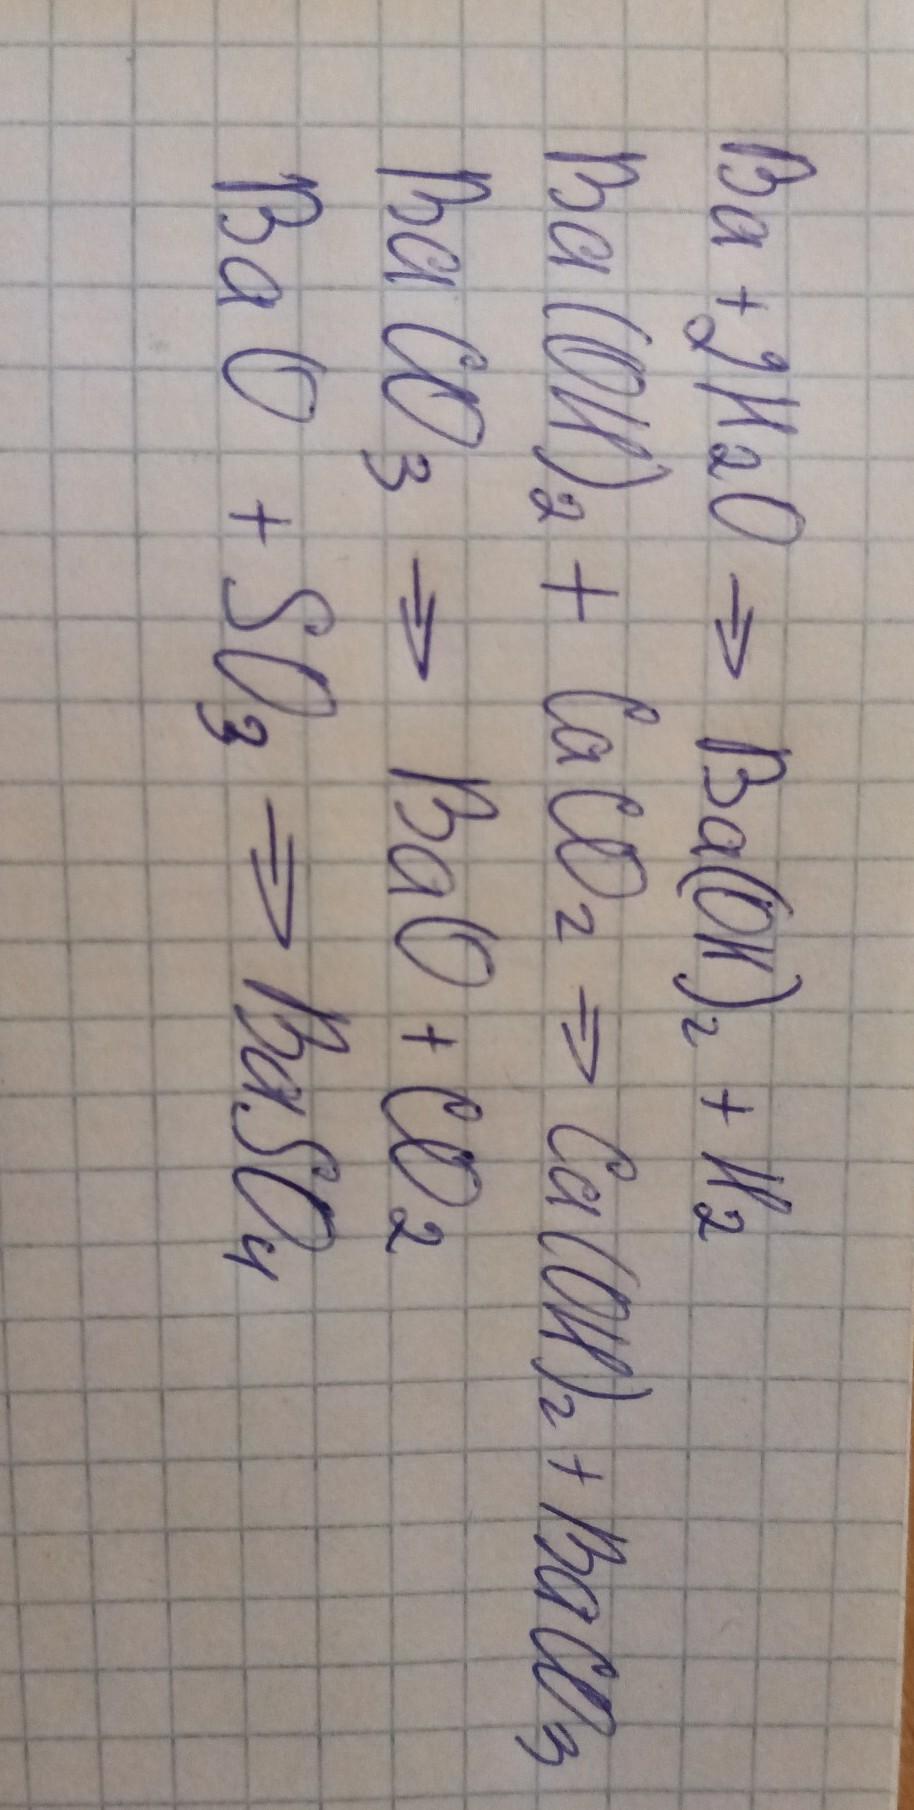 Ba + 2H₂O ⇒ Ba(OH)₂ + H₂
Ba(OH)₂ + CaCO₂ ⇒ Ca(OH)₂ + BaCO₃
BaCO₃ ⇒ BaO + CO₂
BaO + SO₃ ⇒ BaSO₄